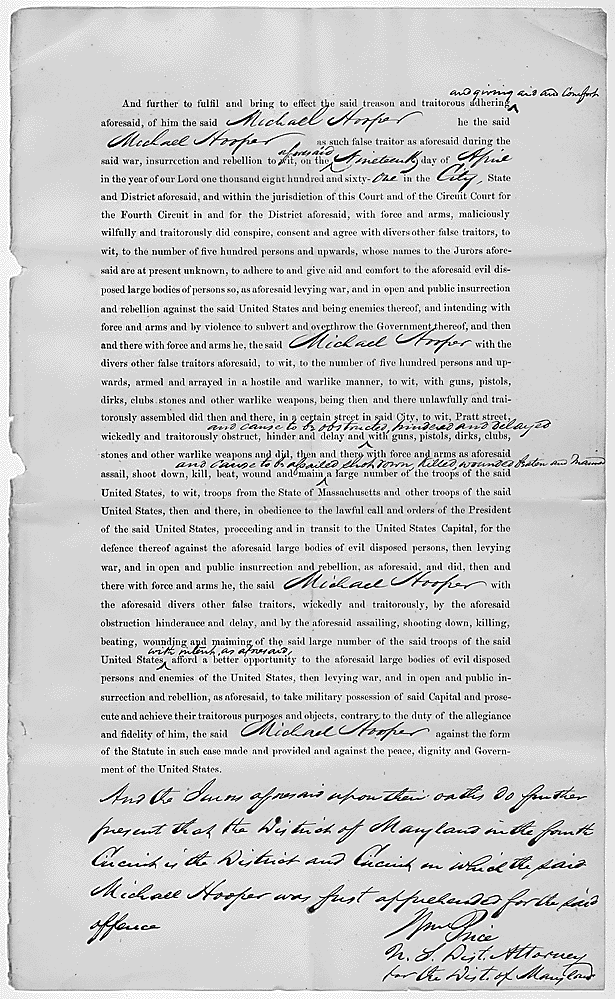 and giving aid and Comfort
And further to fulfil and bring to effect the said treason and traitorous adhering
aforesaid, of him the said Michael Hooper he the said
Michael Hooper as such false traitor as aforesaid during the
aforesaid
said war, insurrection and rebellion to wit, on the Nineteenth day of April
in the year of our Lord one thousand eight hundred and sixty-one in the City, State
and District aforesaid, and within the jurisdiction of this Court and of the Circuit Court for
the Fourth Circuit in and for the District aforesaid, with force and arms, maliciously
wilfully and traitorously did conspire, consent and agree with divers other false traitors, to
wit, to the number of five hundred persons and upwards, whose names to the Jurors afore-
said are at present unknown, to adhere to and give aid and comfort to the aforesaid evil dis-
posed large bodies of persons so, as aforesaid levying war, and in open and public insurrection
and rebellion against the said United States and being enemies thereof, and intending with
force and arms and by violence to subvert and overthrow the Government thereof, and then
and there with force and arms he, the said Michael Hooper with the
divers other false traitors aforesaid, to wit, to the number of five hundred persons and up-
wards, armed and arrayed in a hostile and warlike manner, to wit, with guns, pistols,
dirks, clubs stones and other warlike weapons, being then and there unlawfully and trai-
torously assembled did then and there, in a certain street in said City, to wit, Pratt street,
and cause to be obstructed, hindered and delayed
wickedly and traitorously obstruct, hinder and delay and with guns, pistols, dirks, clubs,
stones and other warlike weapons and did, then and there with force and arms as aforesaid
and cause to be assailed shot down, killed, wounded beaten and maimed
assail, shoot down, kill, beat, wound and maim a large number of the troops of the said
United States, to wit, troops from the State of Massachusetts and other troops of the said
United States, then and there, in obedience to the lawful call and orders of the President
of the said United States, proceeding and in transit to the United States Capital, for the
defence thereof against the aforesaid large bodies of evil disposed persons, then levying
war, and in open and public insurrection and rebellion, as aforesaid, and did, then and
there with force and arms he, the said Michael Hooper with
the aforesaid divers other false traitors, wickedly and traitorously, by the aforesaid
obstruction hinderance and delay, and by the aforesaid assailing, shooting down, killing,
beating, wounding and maiming of the said large number of the said troops of the said
with intent, as aforesaid,
United States, afford a better opportunity to the aforesaid large bodies of evil disposed
persons and enemies of the United States, then levying war, and in open and public in-
surrection and rebellion, as aforesaid, to take military possession of said Capital and prose-
cute and achieve their traitorous purposes and objects, contrary to the duty of the allegiance
and fidelity of him, the said Michael Hooper against the form
of the Statute in such case made and provided and against the peace, dignity and Govern-
ment of the United States.
And the Jurors aforesaid upon their oaths do further
present that the District of Maryland in the fourth
Circuit is the District and Circuit in which the said
Michael Hooper was first apprehended for the said
offence
Wm Price
U. S. Dist. Attorney
for the Dist. of Maryland